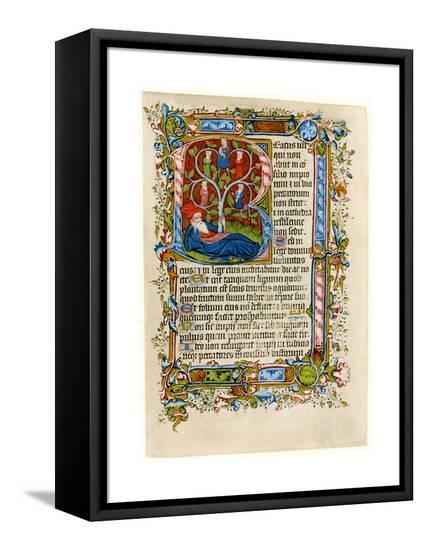 Beatus uir
qui non
abiit in co
silio impio
rum & in uia
peccatorum
non stetit:
et in cathedra
pestilencie
non sedit.
Sed in
lege domini
uoluntas
eius: & in lege eius meditabitur die ac
Et erit tanquam lignum quod
plantatum est secus aquarum:
quod fructum suum dabit in suo
Et folium eius non defluet: & omnia
quecunque faciet prosperabuntur
Non sic impii non sic: sed tanquam
puluis quem proicit uentus a facie
Ideo non resurgent impii in iudicio
neque peccatores in consilio iustorum